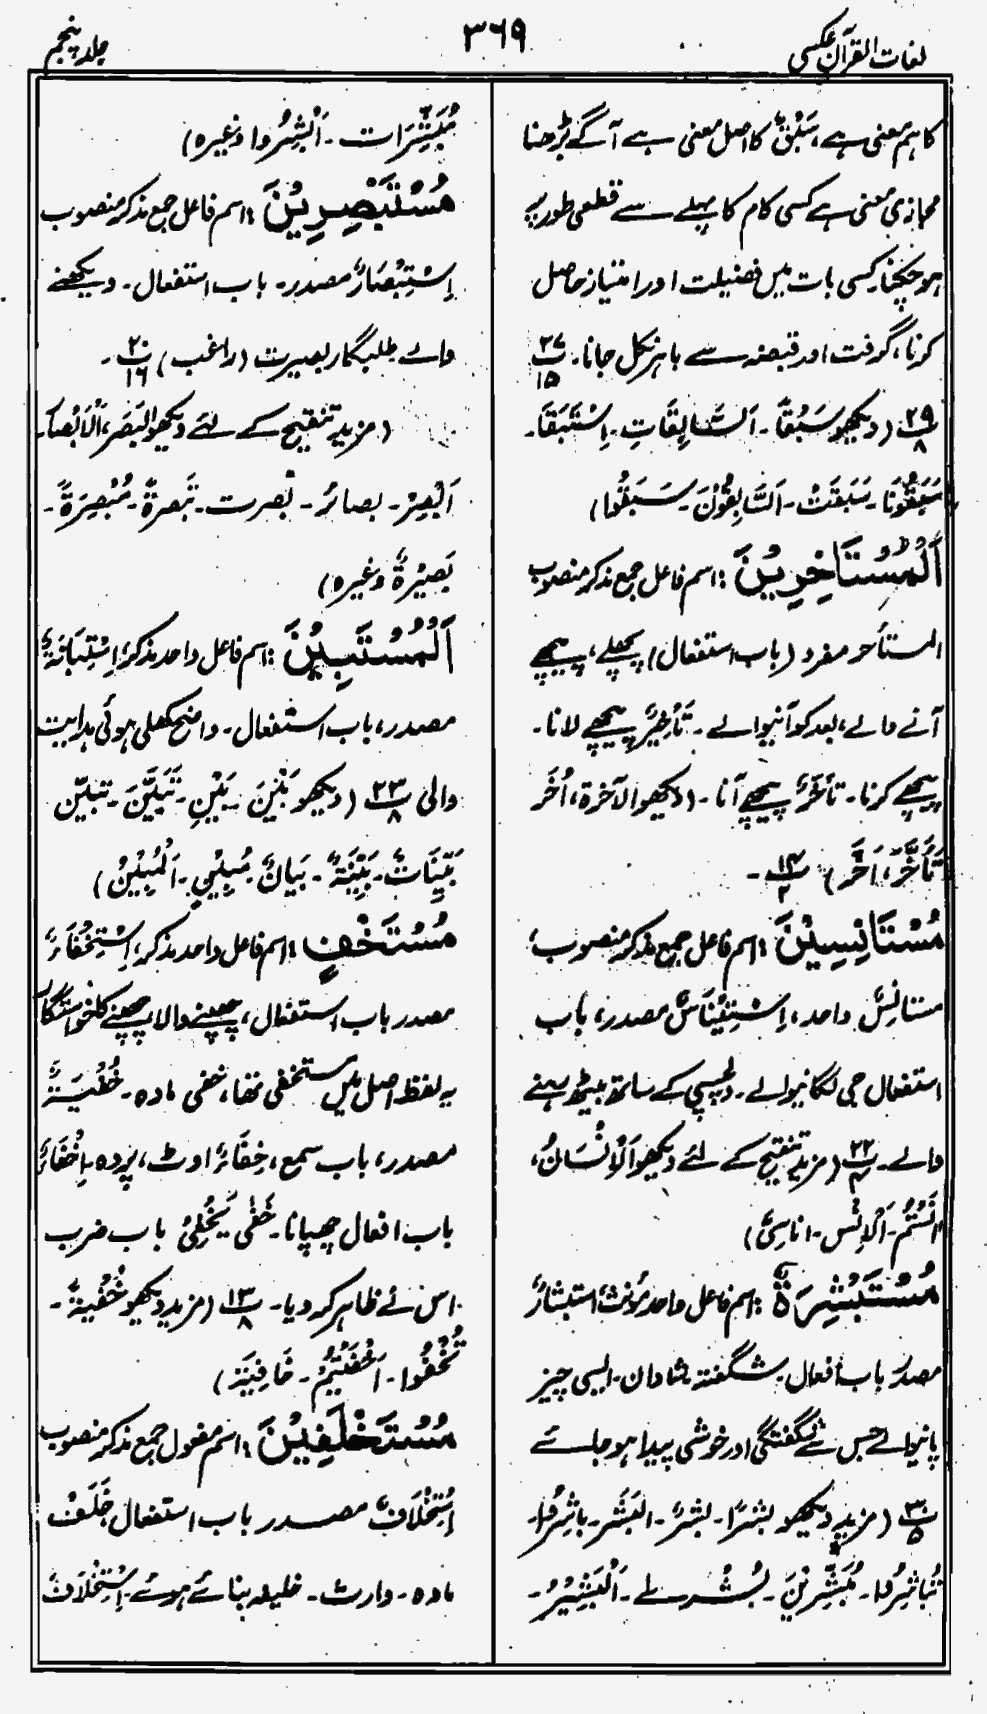 لغات القرآن عکسی
۳۶۹
جلد پنجم
کا ہم معنی ہے، سَبْقٌ کا اصل معنی ہے آگے بڑھنا
مجازی معنی ہے کسی کام کا پہلے سے قطعی طور پر
ہوچکنا کسی بات میں فضیلت اور امتیاز حاصل
کرنا، گرفت اور قبضہ سے باہر نکل جانا۔ ۲۷/۱۵
۲۹/۸ (دیکھو سَبْقًا۔ اَلسَّابِقَاتِ۔ اِسْتَبَقَا۔
سَبَقُوْنَا۔ سَبَقَتْ۔ اَلسَّابِقُوْنَ۔ سَبَقُوا)
اَلْمُسْتَاْخِرِيْنَ: اسم فاعل جمع مذکر منصوب
المستأخر مفرد (باب استفعال) پچھلے، پیچھے
آنے والے، بعد کو آنیوالے۔ تَأْخِيْرٌ پیچھے لانا۔
پیچھے کرنا۔ تَأَخُّرٌ پیچھے آنا۔ (دیکھو الآخرۃ، اُخَر
تَأَخَّرَ، اَخَّرَ) ۱۴/۲۔
مُسْتَاْنِسِيْنَ: اسم فاعل جمع مذکر منصوب،
مستانِسٌ واحد، اِسْتِيْنَاسٌ مصدر، باب
استفعال جی لگانیوالے۔ دلچسپی کے ساتھ بیٹھ رہنے
والے۔ ۲۲/۴ (مزید تنقیح کے لئے دیکھو اَلْاِنْسَانُ،
اٰنَسْتُم۔ اَلْاِنْس۔ اناسِیَّ)
مُسْتَبْشِرَةٌ: اسم فاعل واحد مؤنث، استبشارٌ
مصدر باب افعال۔ شگفتہ شاداں۔ ایسی چیز
پانیوالے جس سے شگفتگی اور خوشی پیدا ہوجائے
۳۰/۵ (مزید دیکھو بشرًا۔ بشرٌ۔ البَشَر۔ باشِرُوا۔
تُبَاشِرُوا۔ مُبَشِّرِيْنَ۔ بُشْرىٰ۔ اَلْبَشِيْرُ۔
مُبَشِّرَات۔ اَبْشِرُوا وغیرہ)
مُسْتَبْصِرِيْنَ: اسم فاعل جمع مذکر منصوب
اِسْتِبْصَارٌ مصدر۔ باب استفعال۔ دیکھنے
والے۔ طلبگار بصیرت (راغب) ۲۰/۱۶۔
(مزید تنقیح کے لئے دیکھو البَصَر، اَلْاَبْصَار
اَبْصِرْ۔ بصائر۔ بصرت۔ تَبصرةً۔ مُبْصِرَةً۔
بَصِيْرَةٌ وغیرہ)
اَلْمُسْتَبِيْنَ: اسم فاعل واحد مذکر، اِسْتِبَانَةٌ
مصدر، باب استفعال۔ واضح کھلی ہوئی ہدایت
والی ۲۳/۸ (دیکھو بَيْنَ۔ بَيْنِ۔ تَبَيَّنَ۔ تبیّن
بَيِّنَاتٌ۔ بَيِّنَةٌ۔ بَيَانٌ۔ مُبِيْنٍ۔ اَلْمُبِيْنُ)
مُسْتَخْفٍ: اسم فاعل واحد مذکر، اِسْتِخْفَاءٌ،
مصدر باب استفعال، چھپنے والا چھپنے کا خواستگار
یہ لفظ اصل میں مستخفی تھا، خفی مادہ۔ خُفْيَةٌ
مصدر، باب سمع، خِفَاءٌ اوٹ، پردہ۔ اِخْفَاءٌ
باب افعال چھپانا۔ خَفٰى يَخْفِىْ باب ضرب
اس نے ظاہر کر دیا۔ ۱۳/۸ (مزید دیکھو خُفْيَةً۔
تُخْفُوا۔ اَخْفَيْتُمْ۔ خَافِيَة)
مُسْتَخْلَفِيْنَ: اسم مفعول جمع مذکر منصوب
اِسْتِخْلَافٌ مصدر باب استفعال، خَلَفٌ
مادہ۔ وارث۔ خلیفہ بنائے ہوئے۔ اِسْتِخْلَافٌ